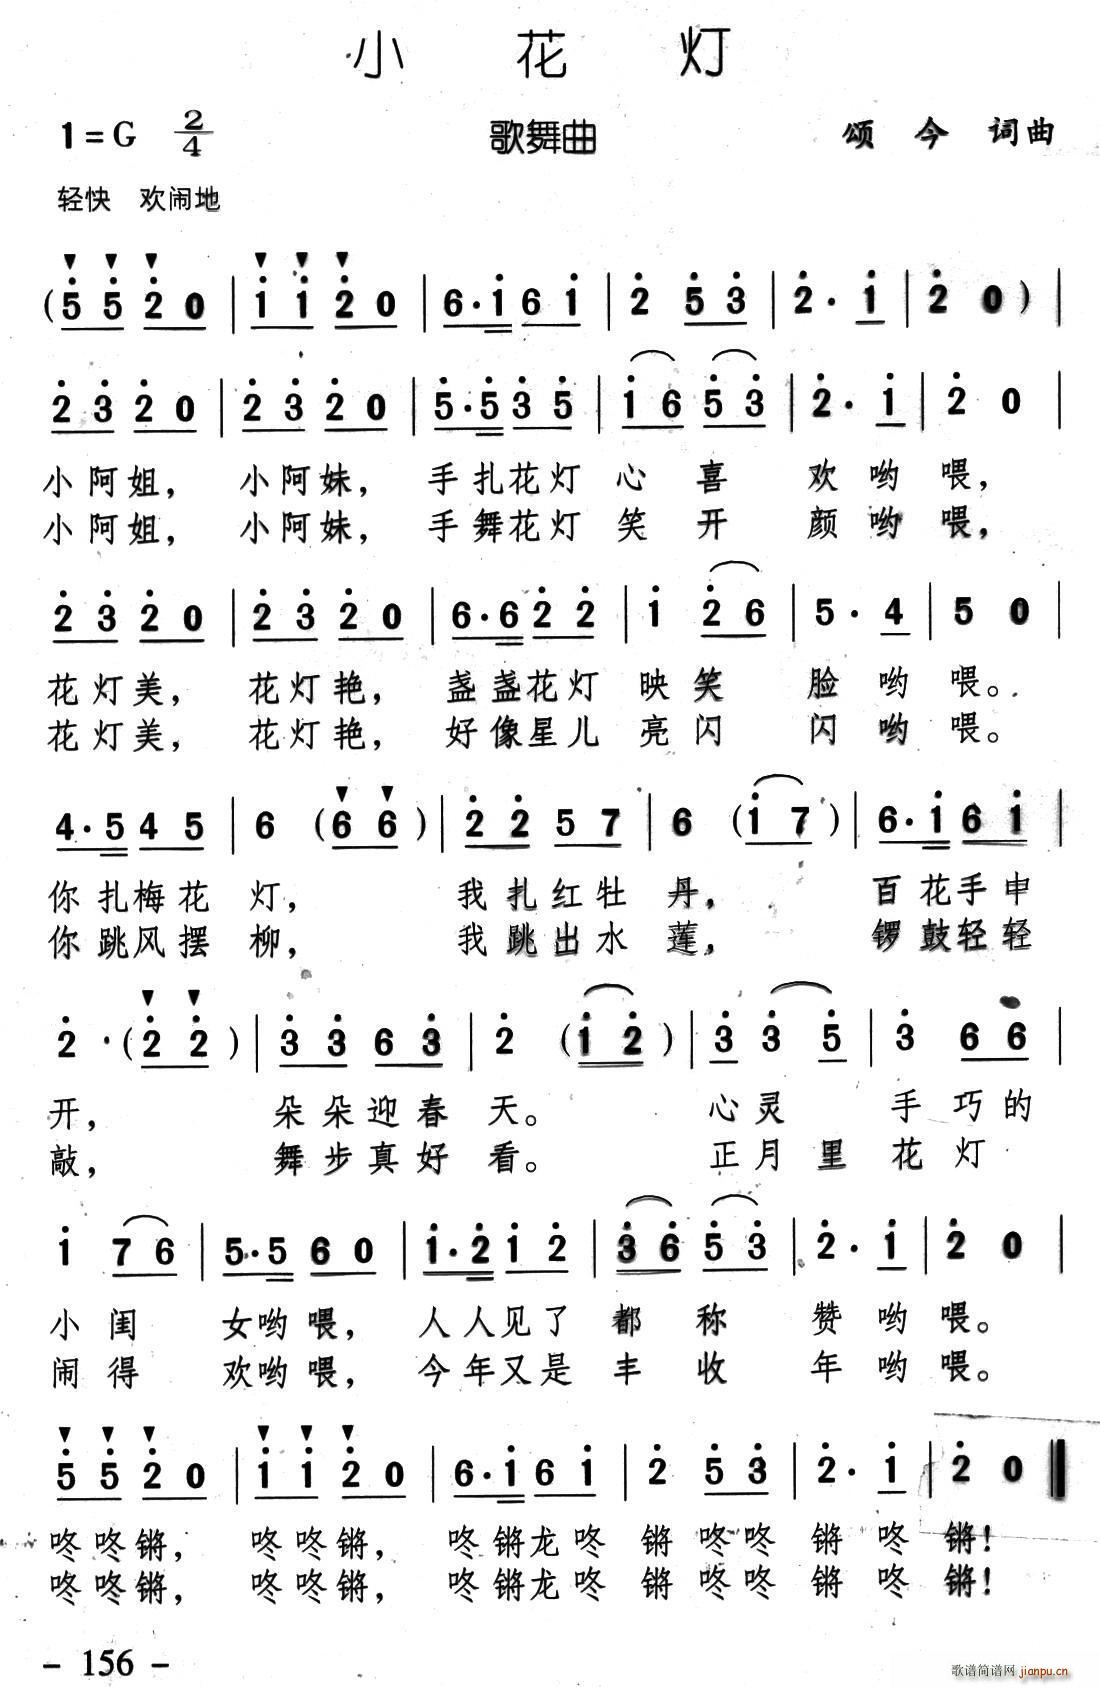 小 花 灯
1=G 2/4 歌舞曲 颂 今 词曲
轻快 欢闹地
(5 5 2 0 | 1 1 2 0 | 6·1 6 1 | 2 5 3 | 2· 1 | 2 0) |
2 3 2 0 | 2 3 2 0 | 5·5 3 5 | 1 6 5 3 | 2· 1 | 2 0 |
小阿姐, 小阿妹, 手扎花灯 心 喜 欢 哟 喂,
小阿姐, 小阿妹, 手舞花灯 笑 开 颜 哟 喂,
2 3 2 0 | 2 3 2 0 | 6·6 2 2 | 1 2 6 | 5· 4 | 5 0 |
花灯美, 花灯艳, 盏盏花灯 映 笑 脸 哟 喂。
花灯美, 花灯艳, 好像星儿 亮 闪 闪 哟 喂。
4·5 4 5 | 6 (6 6) | 2 2 5 7 | 6 (1 7) | 6·1 6 1 |
你扎梅花 灯, 我扎红牡 丹, 百花手中
你跳风摆 柳, 我跳出水 莲, 锣鼓轻轻
2 ·(2 2) | 3 3 6 3 | 2 (1 2) | 3 3 5 | 3 6 6 |
开, 朵朵迎春 天。 心灵 手 巧的
敲, 舞步真好 看。 正月里 花 灯
1 7 6 | 5·5 6 0 | 1·2 1 2 | 3 6 5 3 | 2· 1 | 2 0 |
小 闺 女哟喂, 人人见了 都 称 赞 哟 喂。
闹 得 欢哟喂, 今年又是 丰 收 年 哟 喂。
5 5 2 0 | 1 1 2 0 | 6·1 6 1 | 2 5 3 | 2· 1 | 2 0 ‖
咚咚锵, 咚咚锵, 咚锵龙咚 锵 咚咚 锵 咚 锵!
咚咚锵, 咚咚锵, 咚锵龙咚 锵 咚咚 锵 咚 锵!
- 156 -
歌谱简谱网 jianpu.cn